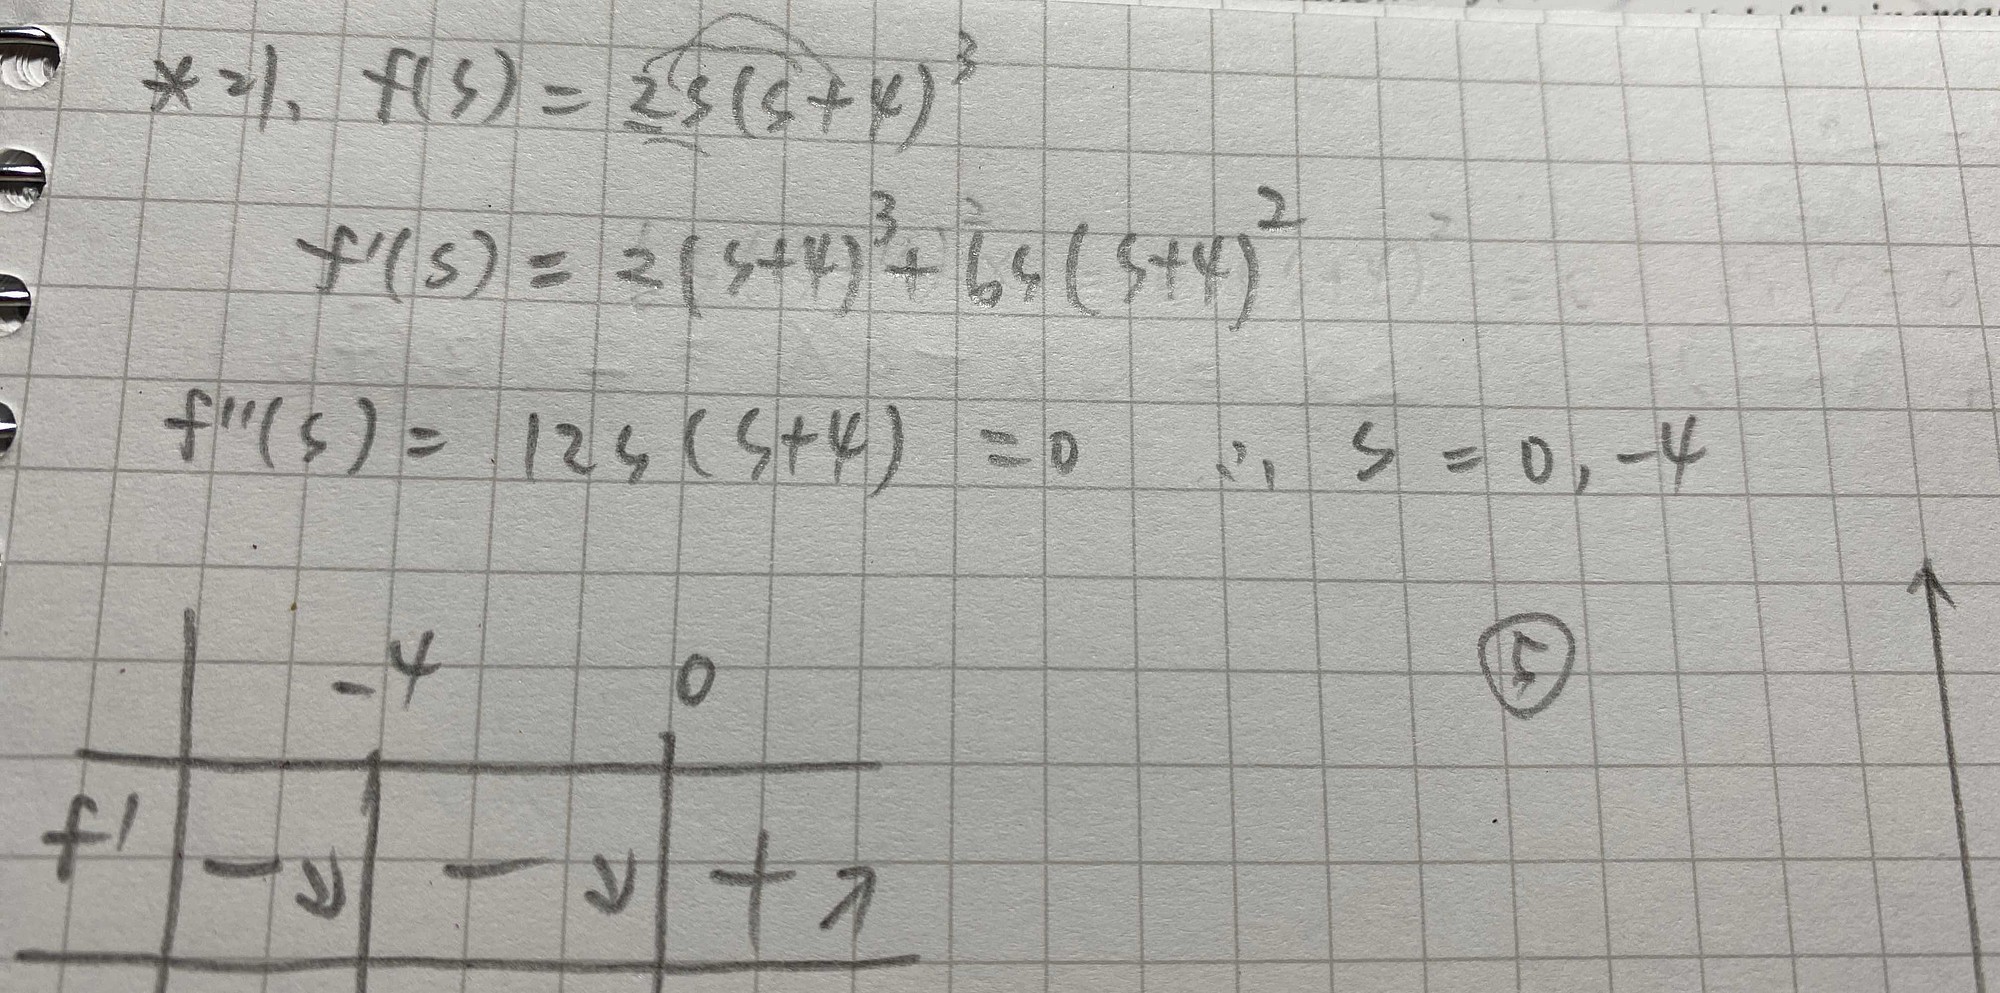 * 21. f(s) = 2s(s+4)³
f'(s) = 2(s+4)³ + 6s(s+4)²
f''(s) = 12s(s+4) = 0 ∴ s = 0, -4
-4 0
5
f' - ↘ - ↘ + ↗